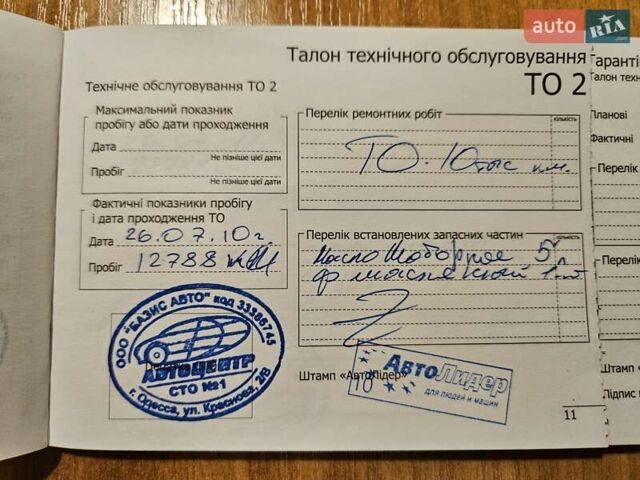 auto RIA
.com
Талон технічного обслуговування
ТО 2
Технічне обслуговування ТО 2
Максимальний показник
пробігу або дати проходження
Дата
Не пізніше цієї дати
Пробіг
Не пізніше цієї дати
Фактичні показники пробігу
і дата проходження ТО
Дата 26.07.10г.
Пробіг 12788 км
Перелік ремонтних робіт
КІЛЬКІСТЬ
ТО-10тыс км.
Перелік встановлених запасних частин
КІЛЬКІСТЬ
Масло 5л
ф 1шт
ООО "БАЗИС АВТО" код 33386745
АВТОЦЕНТР
СТО №1
г. Одесса, ул. Краснова, 2/В
Штамп «АвтоЛідер»
10
АвтоЛидер
для людей и машин
11
Гаранті
Талон техні
Планові
Фактичні
Перелік
Перелік
Штамп
Підпис